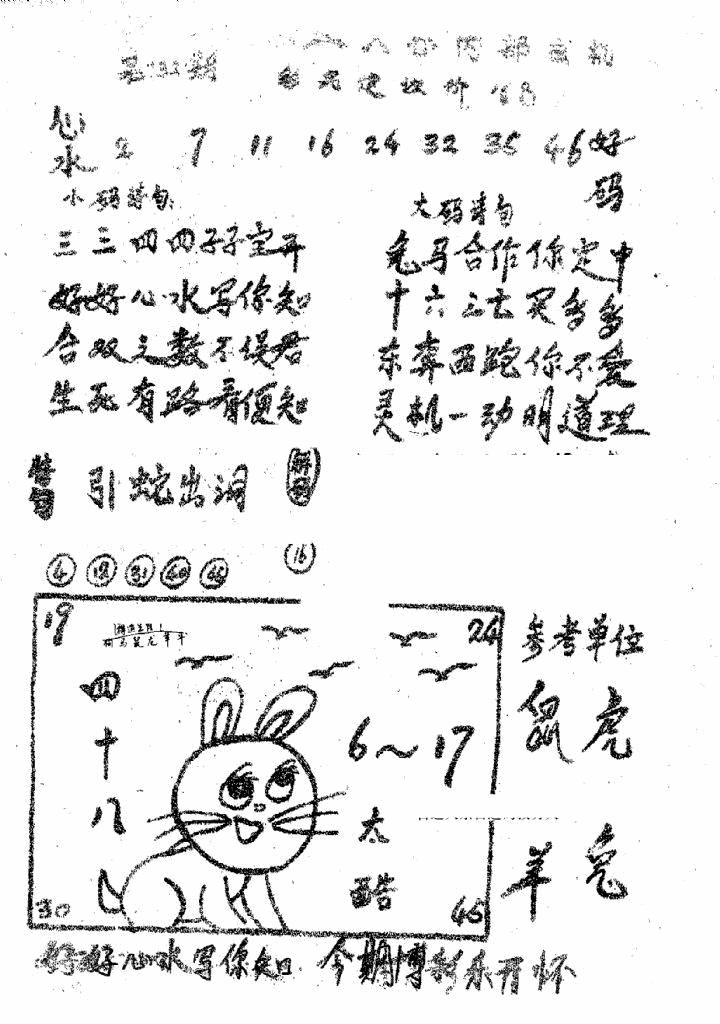 心水 2 7 11 16 24 32 35 46 好码
小码诗句
三三四四子子宝开
好好心水写你知
合双之数不误君
生死有路看便知
大码诗句
兔马合作你定中
十六三七买多多
东奔西跑你不爱
灵机一动明道理
特句 引蛇出洞
4 12 31 40 45 16
19 24
四十八
6～17
太酷
30 45
参考单位
鼠虎
羊兔
好好心水写你知 今期博彩乐开怀